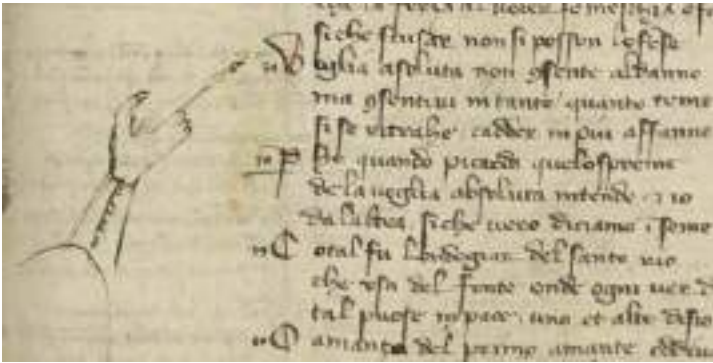 si che scusar non si posson lofese
V oglia asoluta non gsente aldanno
ma gsentevi in tanto quanto teme
si se ritrahe cadder in piu affanno
P ho quando picarda quelospreme
de la voglia absoluta intende 7 io
da laltra si che vero diciamo i seme
C otal fu londegiar del santo rio
che usci del fonte onde ogni ver d
tal puose in pace uno et altr disio
O amanza del primo amante